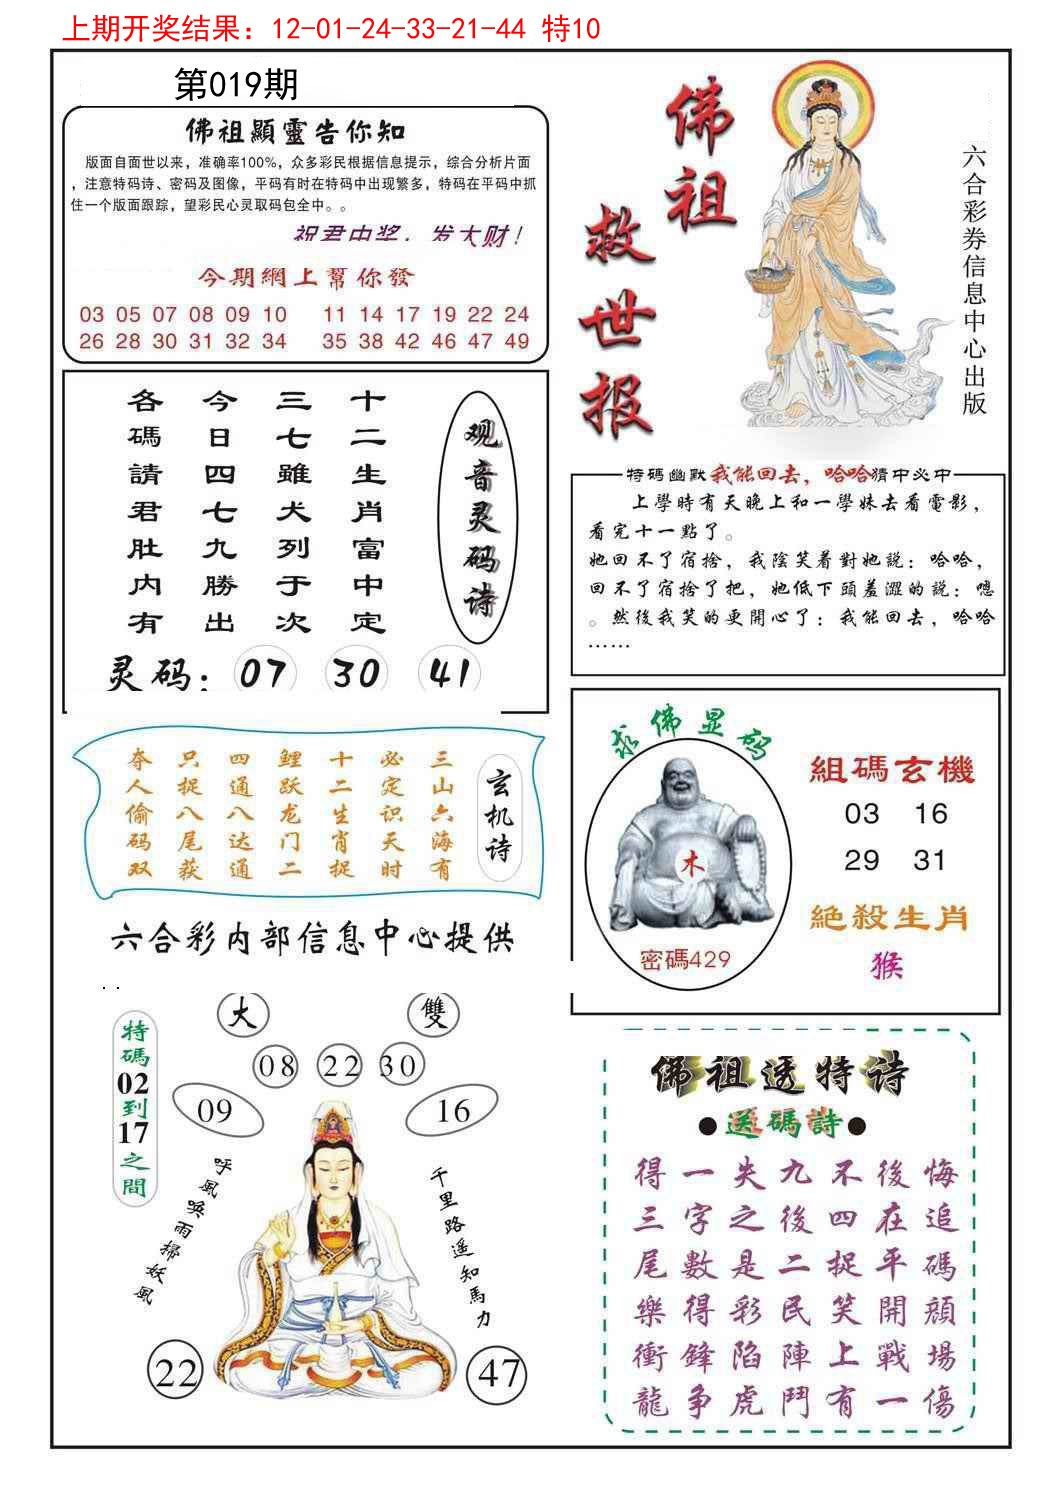 上期开奖结果：12-01-24-33-21-44 特10
第019期
佛祖顯靈告你知
版面自面世以来，准确率100%，众多彩民根据信息提示，综合分析片面
，注意特码诗、密码及图像，平码有时在特码中出现繁多，特码在平码中抓
住一个版面跟踪，望彩民心灵取码包全中。。
祝君中奖，发大财！
今期網上幫你發
03 05 07 08 09 10 11 14 17 19 22 24
26 28 30 31 32 34 35 38 42 46 47 49
佛祖
救世报
六合彩券信息中心出版
观音灵码诗
十二生肖富中定
三七雖犬列于次
今日四七九勝出
各碼請君肚内有
灵码：07 30 41
特码幽默我能回去，哈哈猜中必中
上學時有天晚上和一學妹去看電影，
看完十一點了。
她回不了宿捨，我陰笑着對她説：哈哈，
回不了宿捨了把，她低下頭羞澀的説：嗯
。然後我笑的更開心了：我能回去，哈哈
……
玄机诗
三山六海有
必定识天时
十二生肖捉
鲤跃龙门二
四通八达通
只捉八尾获
夺人偷码双
六合彩内部信息中心提供
求佛显码
木
密碼429
組碼玄機
03 16
29 31
絶殺生肖
猴
大
雙
08 22 30
09
16
特碼02到17之間
呼風唤雨掃妖風
千里路遥知馬力
22
47
佛祖透特诗
●送碼詩●
得一失九不後悔
三字之後四在追
尾數是二捉平碼
樂得彩民笑開顔
衝鋒陷陣上戰場
龍争虎鬥有一傷